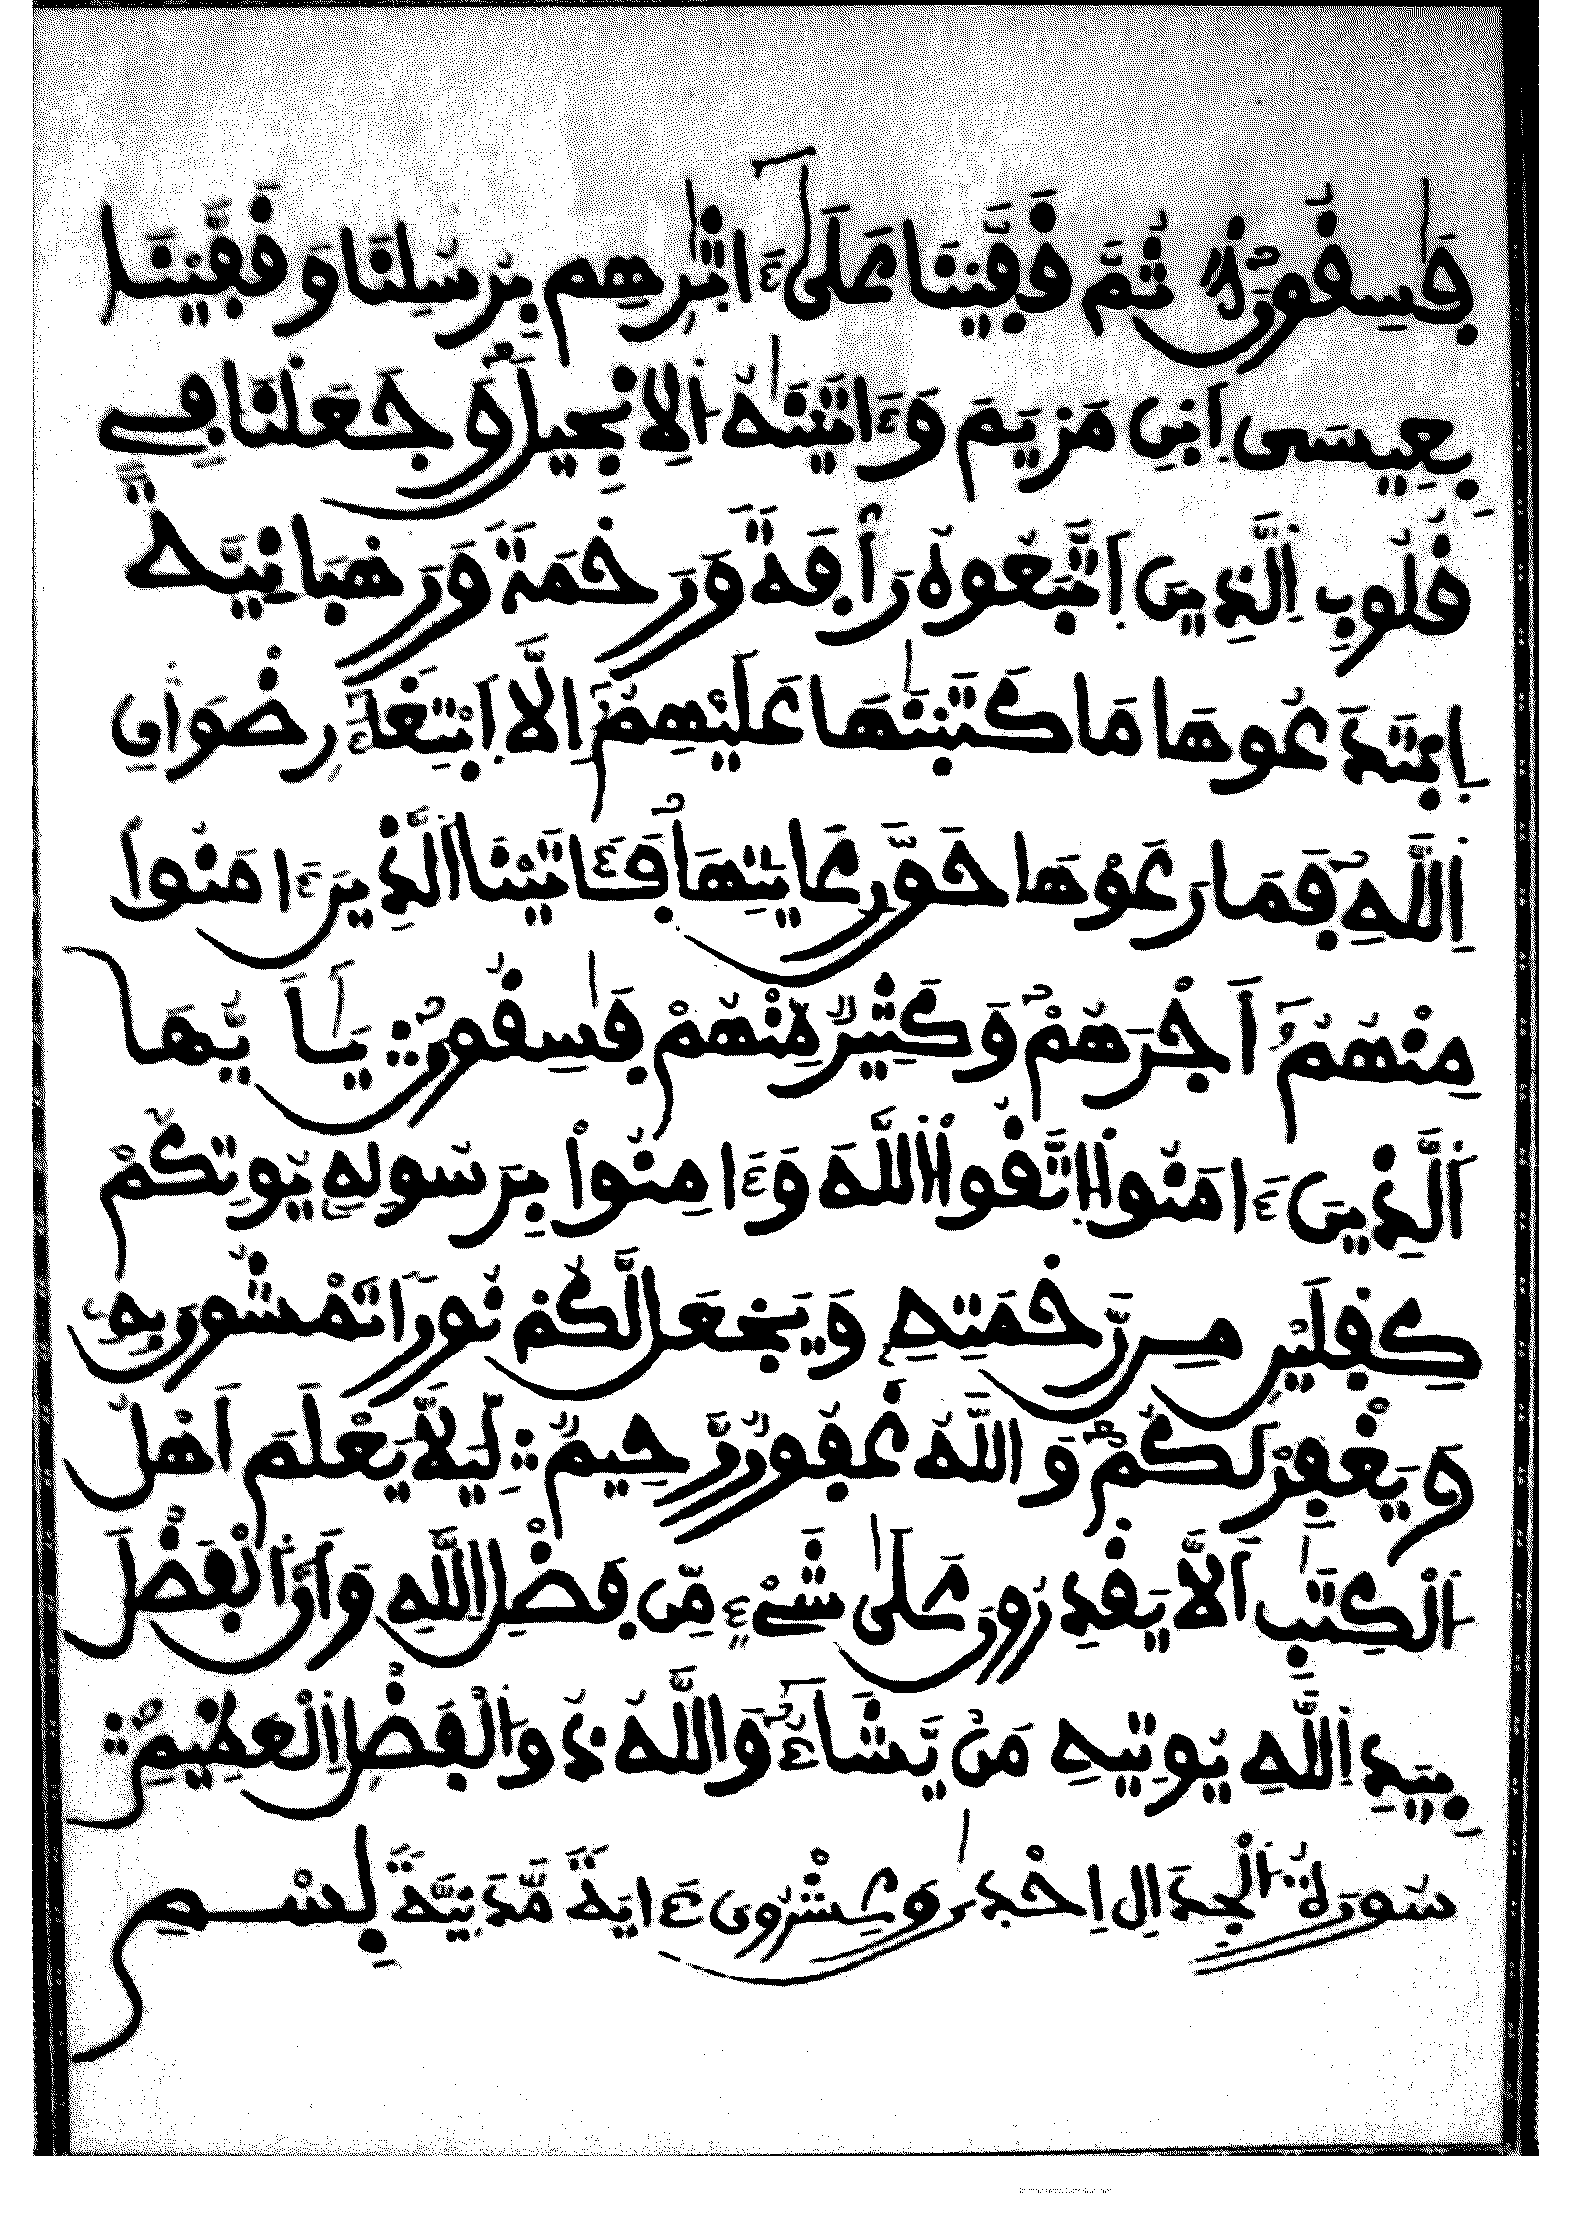 فَٰسِقُونَ ثُمَّ قَفَّيْنَا عَلَىٰٓ ءَاثَٰرِهِم بِرُسُلِنَا وَقَفَّيْنَا
بِعِيسَى اَبْنِ مَرْيَمَ وَءَاتَيْنَٰهُ اَلِانجِيلَ وَجَعَلْنَا فِے
قُلُوبِ اِلَّذِينَ اَتَّبَعُوهُ رَأْفَةً وَرَحْمَةً وَرَهْبَانِيَّةً
اِبْتَدَعُوهَا مَا كَتَبْنَٰهَا عَلَيْهِمُۥٓ إِلَّا اَبْتِغَآءَ رِضْوَانِ
اِللَّهِ فَمَا رَعَوْهَا حَقَّ رِعَايَتِهَا فَـَٔاتَيْنَا اَلَّذِينَ ءَامَنُوا
مِنْهُمُۥٓ أَجْرَهُمْ وَكَثِيرٌ مِّنْهُمْ فَٰسِقُونَ يَٰٓأَيُّهَا
اَلَّذِينَ ءَامَنُوا اَتَّقُوا اَللَّهَ وَءَامِنُوا بِرَسُولِهِ يُوتِكُمْ
كِفْلَيْنِ مِن رَّحْمَتِهِ وَيَجْعَل لَّكُمْ نُورًا تَمْشُونَ بِهِ
وَيَغْفِرْ لَكُمْ وَاللَّهُ غَفُورٌ رَّحِيمٌ لِّيَلَّا يَعْلَمَ أَهْلُ
اَلْكِتَٰبِ أَلَّا يَقْدِرُونَ عَلَىٰ شَےْءٍ مِّن فَضْلِ اِللَّهِ وَأَنَّ اَلْفَضْلَ
بِيَدِ اِللَّهِ يُوتِيهِ مَنْ يَّشَآءُ وَاللَّهُ ذُو اَلْفَضْلِ اِلْعَظِيمِ
سُورَةُ الْمُجَدَالِ اِحْدَىٰ وَعِشْرُونَ ءَايَةً مَّدَنِيَّةً بِسْمِ